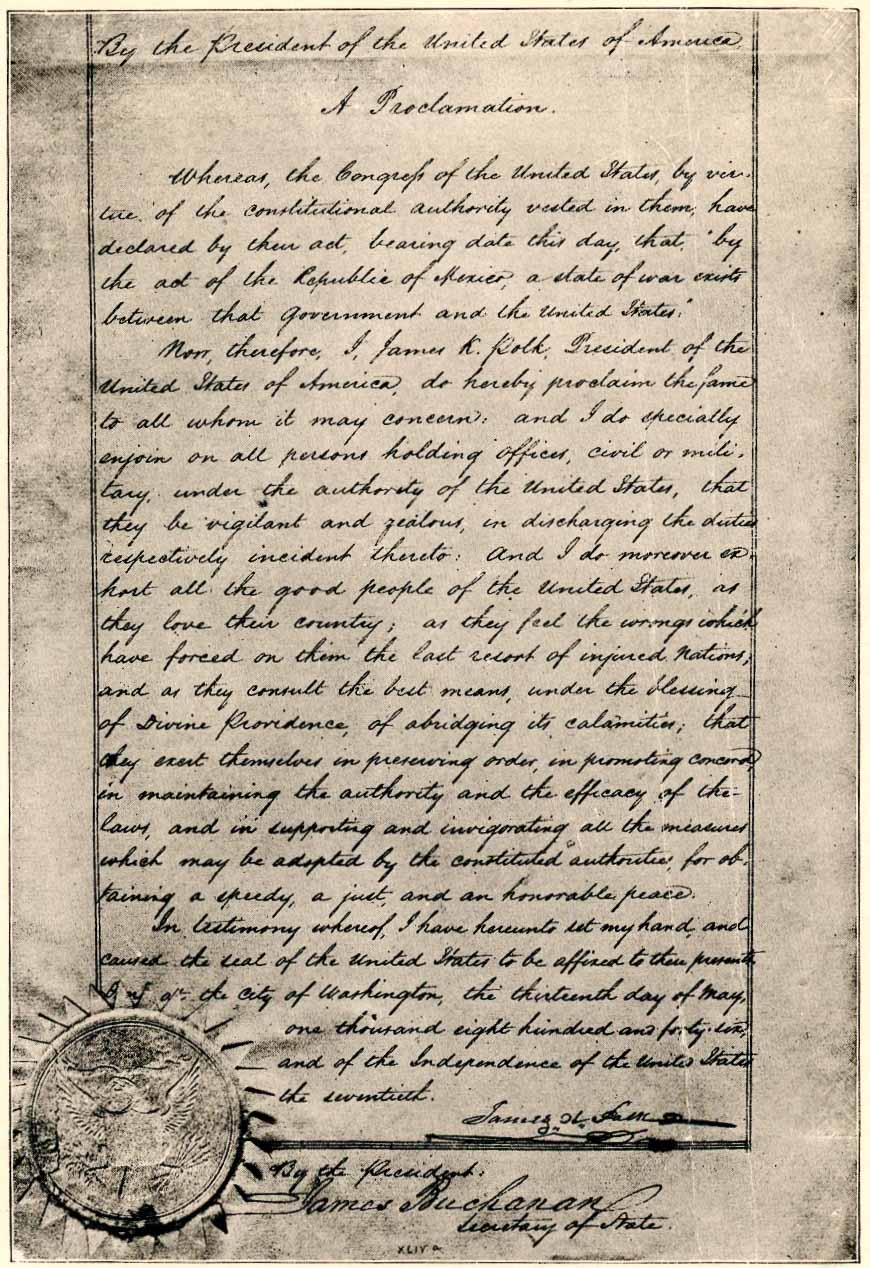 By the President of the United States of America
A Proclamation.
Whereas, the Congress of the United States, by vir-
tue of the constitutional authority vested in them, have
declared by their act, bearing date this day, that, "by
the act of the Republic of Mexico, a state of war exists
between that Government and the United States:"
Now, therefore, I, James K. Polk, President of the
United States of America, do hereby proclaim the same
to all whom it may concern: and I do specially
enjoin on all persons holding offices, civil or mili-
tary, under the authority of the United States, that
they be vigilant and zealous, in discharging the duties
respectively incident thereto: And I do moreover ex-
hort all the good people of the United States, as
they love their country; as they feel the wrongs which
have forced on them the last resort of injured Nations;
and as they consult the best means, under the blessing
of Divine Providence, of abridging its calamities; that
they exert themselves in preserving order, in promoting concord,
in maintaining the authority and the efficacy of the
laws, and in supporting and invigorating all the measures
which may be adopted by the constituted authorities, for ob-
taining a speedy, a just, and an honorable peace.
In testimony whereof, I have hereunto set my hand, and
caused the seal of the United States to be affixed to these presents.
the City of Washington, the thirteenth day of May,
one thousand eight hundred and forty-six,
and of the Independence of the United States
the seventieth.
James K. Polk
By the President:
James Buchanan
Secretary of State.
XLIV a